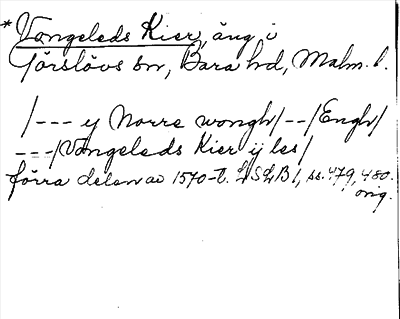 * Vongeleds Kier, äng i
Görslövs sn, Bara hd, Malm. l.
/--- y Norre wongh/--/Engh/
---/Vongeleds Kier ij les/
förra delen av 1570-t. LSLB 1, ss. 479, 480.
orig.